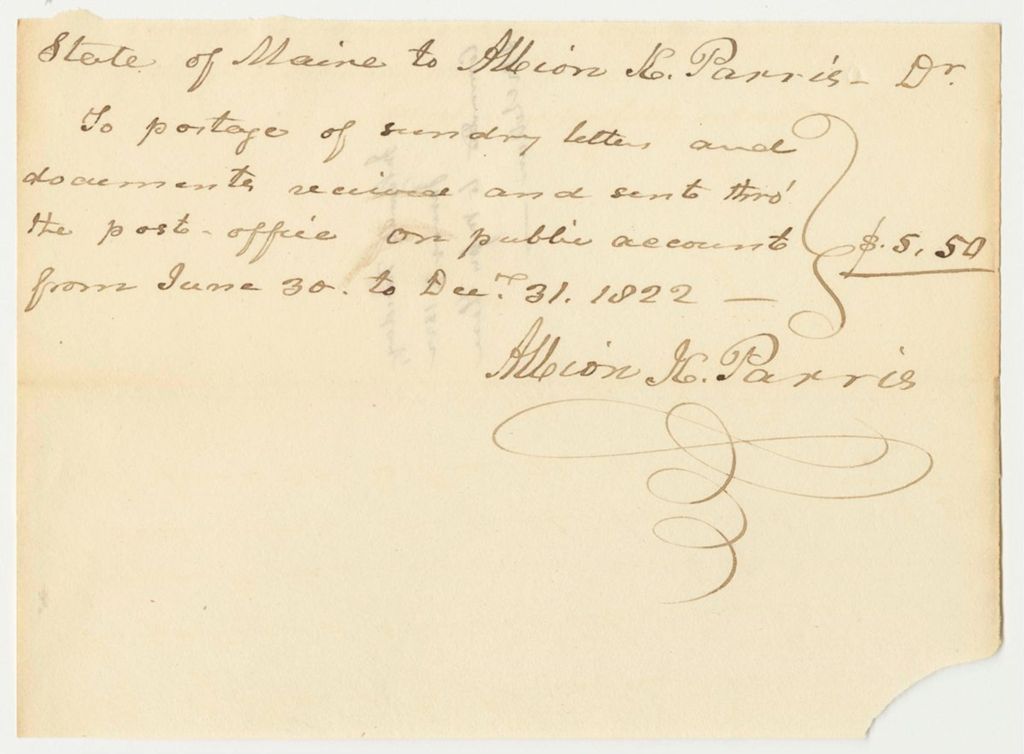 State of Maine to Albion K. Parris – Dr.
To postage of sundry letters and
documents received and sent thro'
the post-office on public account
from June 30. to Decr. 31. 1822 —
$.5,50
Albion K. Parris